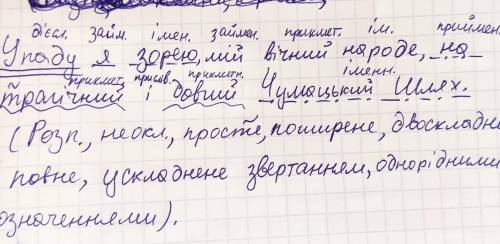 дієсл. займ. імен. займен. прикмет. ім. приймен
Упаду я зорею, мій вічний народе, на
прикмет. присв. прикметн. іменн.
трагічний і довгий Чумацький Шлях.
(Розп., неокл., просте, поширене, двоскладне
повне, ускладнене звертанням, однорідними
означеннями).